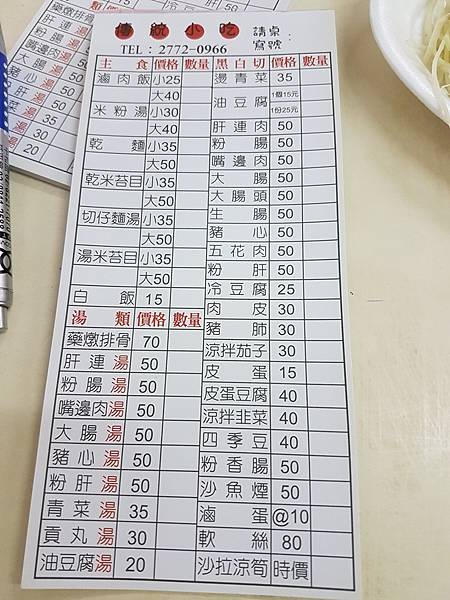 傳統小吃
請桌
寫號：
TEL：2772-0966
主食 價格 數量
滷肉飯 小25
大40
米粉湯 小30
大40
乾麵 小35
大50
乾米苔目 小35
大50
切仔麵湯 小35
大50
湯米苔目 小35
大50
白飯 15
湯類 價格 數量
藥燉排骨 70
肝連湯 50
粉腸湯 50
嘴邊肉湯 50
大腸湯 50
豬心湯 50
粉肝湯 50
青菜湯 35
貢丸湯 30
油豆腐湯 20
黑白切 價格 數量
燙青菜 35
油豆腐 1個15元
1份25元
肝連肉 50
粉腸 50
嘴邊肉 50
大腸 50
大腸頭 50
生腸 50
豬心 50
五花肉 50
粉肝 50
冷豆腐 25
肉皮 30
豬肺 30
涼拌茄子 30
皮蛋 15
皮蛋豆腐 40
涼拌韭菜 40
四季豆 40
粉香腸 50
沙魚煙 50
滷蛋 @10
軟絲 80
沙拉涼筍 時價